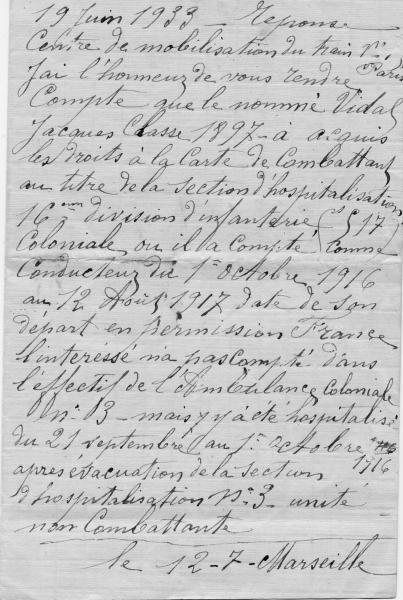 19 Juin 1933 - Reponse
Centre de mobilisation du train n° 1 Paris
Jai l'honneur de vous rendre
Compte que le nommé Vidal
Jacques Classe 1897 - à acquis
les droits à la Carte de Combattant
au titre de la section d'hospitalisation
16em division d'infanterie (S 17)
Coloniale, ou il a Compté comme
Conducteur du 1er octobre 1916
au 12 Août 1917 date de son
départ en permission France
l'intéréssé n'a pas Compté dans
l'éffectif de l'Ambulance Coloniale
n° 3 - mais y a été hospitalisé
du 21 septembre au 1er octobre 1916
après évacuation de la section
d'hospitalisation N° 3 - unité
non Combattante
le 12-7- Marseille